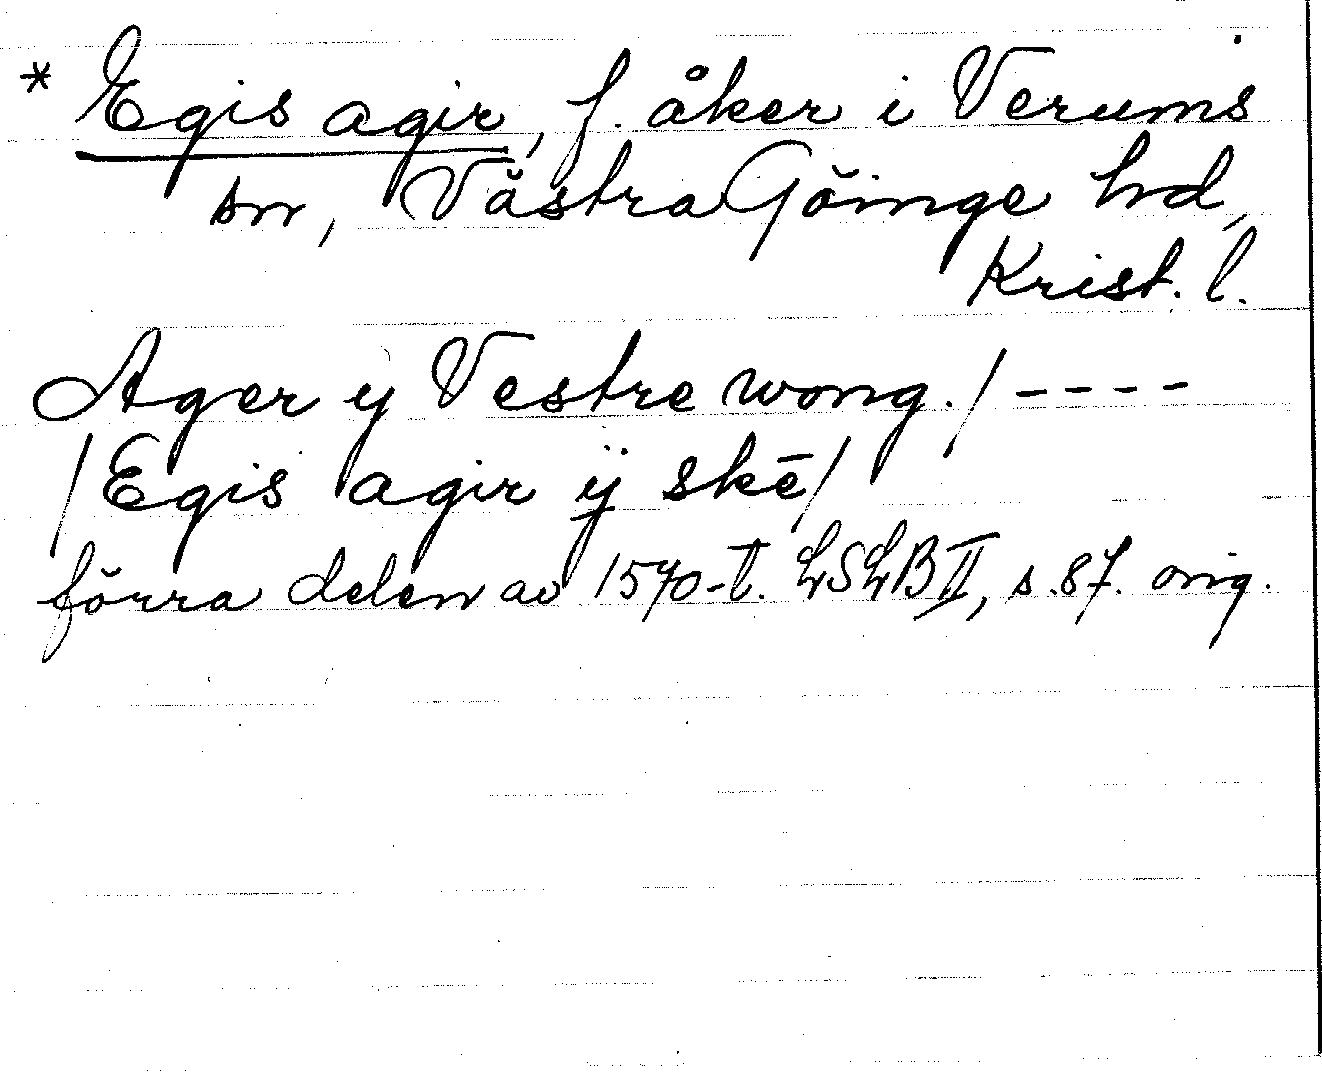 * Egis agir, f. åker i Verums
sn, Västra Göinge hd,
Krist. l.
Ager y Vestre wong./----
/Egis agir ÿ skē/
förra delen av 1570-t. LSLB II, s.87. orig.